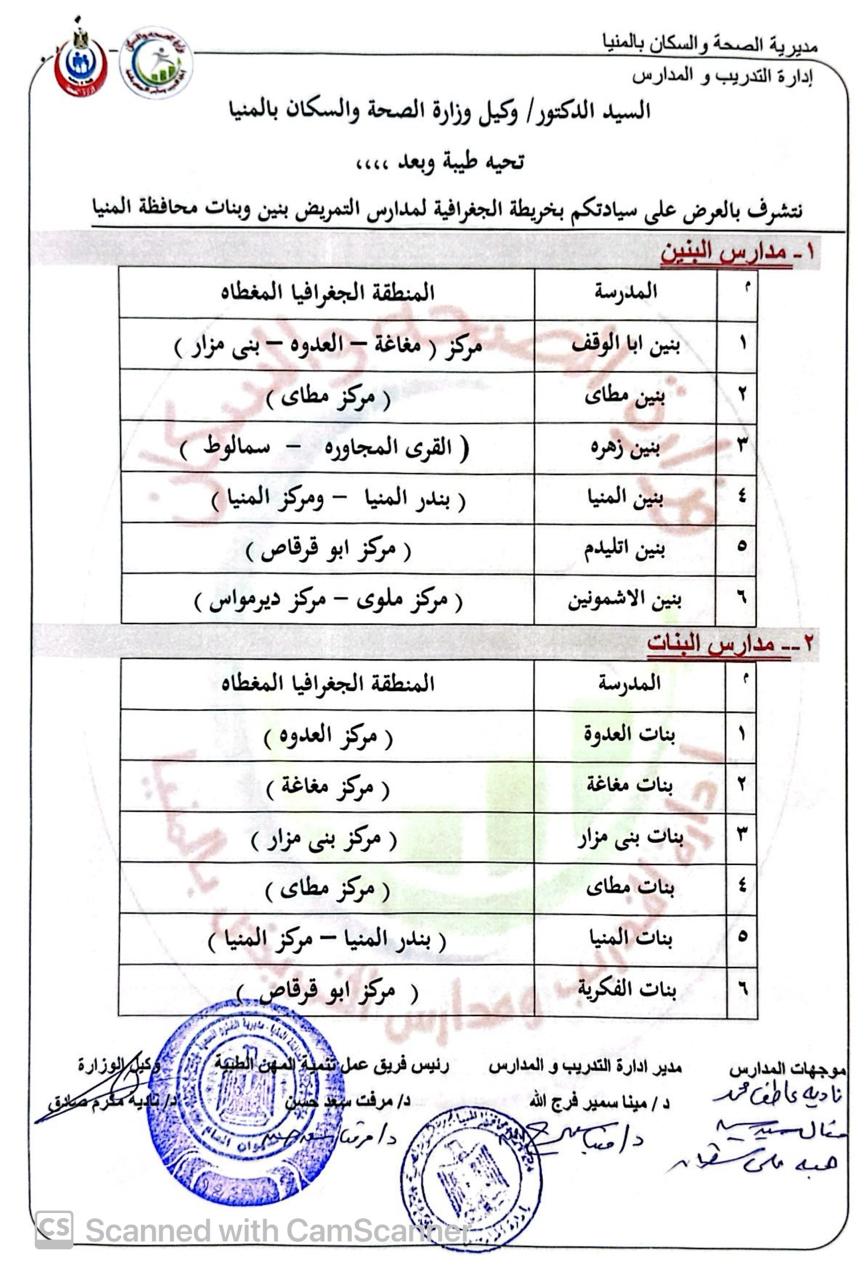 مديرية الصحة والسكان بالمنيا
إدارة التدريب و المدارس
السيد الدكتور/ وكيل وزارة الصحة والسكان بالمنيا
تحيه طيبة وبعد ،،،،
نتشرف بالعرض على سيادتكم بخريطة الجغرافية لمدارس التمريض بنين وبنات محافظة المنيا
١- مدارس البنين
م المدرسة المنطقة الجغرافيا المغطاه
١ بنين ابا الوقف مركز ( مغاغة – العدوه – بنى مزار )
٢ بنين مطاى ( مركز مطاى )
٣ بنين زهره ( القرى المجاوره – سمالوط )
٤ بنين المنيا ( بندر المنيا – ومركز المنيا )
٥ بنين اتليدم ( مركز ابو قرقاص )
٦ بنين الاشمونين ( مركز ملوى – مركز ديرمواس )
٢-- مدارس البنات
م المدرسة المنطقة الجغرافيا المغطاه
١ بنات العدوة ( مركز العدوه )
٢ بنات مغاغة ( مركز مغاغة )
٣ بنات بنى مزار ( مركز بنى مزار )
٤ بنات مطاى ( مركز مطاى )
٥ بنات المنيا ( بندر المنيا – مركز المنيا )
٦ بنات الفكرية ( مركز ابو قرقاص )
موجهات المدارس مدير ادارة التدريب و المدارس رئيس فريق عمل تنمية المهن الطبية وكيل الوزارة
نادية عاطف محمد د / مينا سمير فرج الله د/ مرفت سعد حسن د/ نادية مكرم صادق
CS Scanned with CamScanner